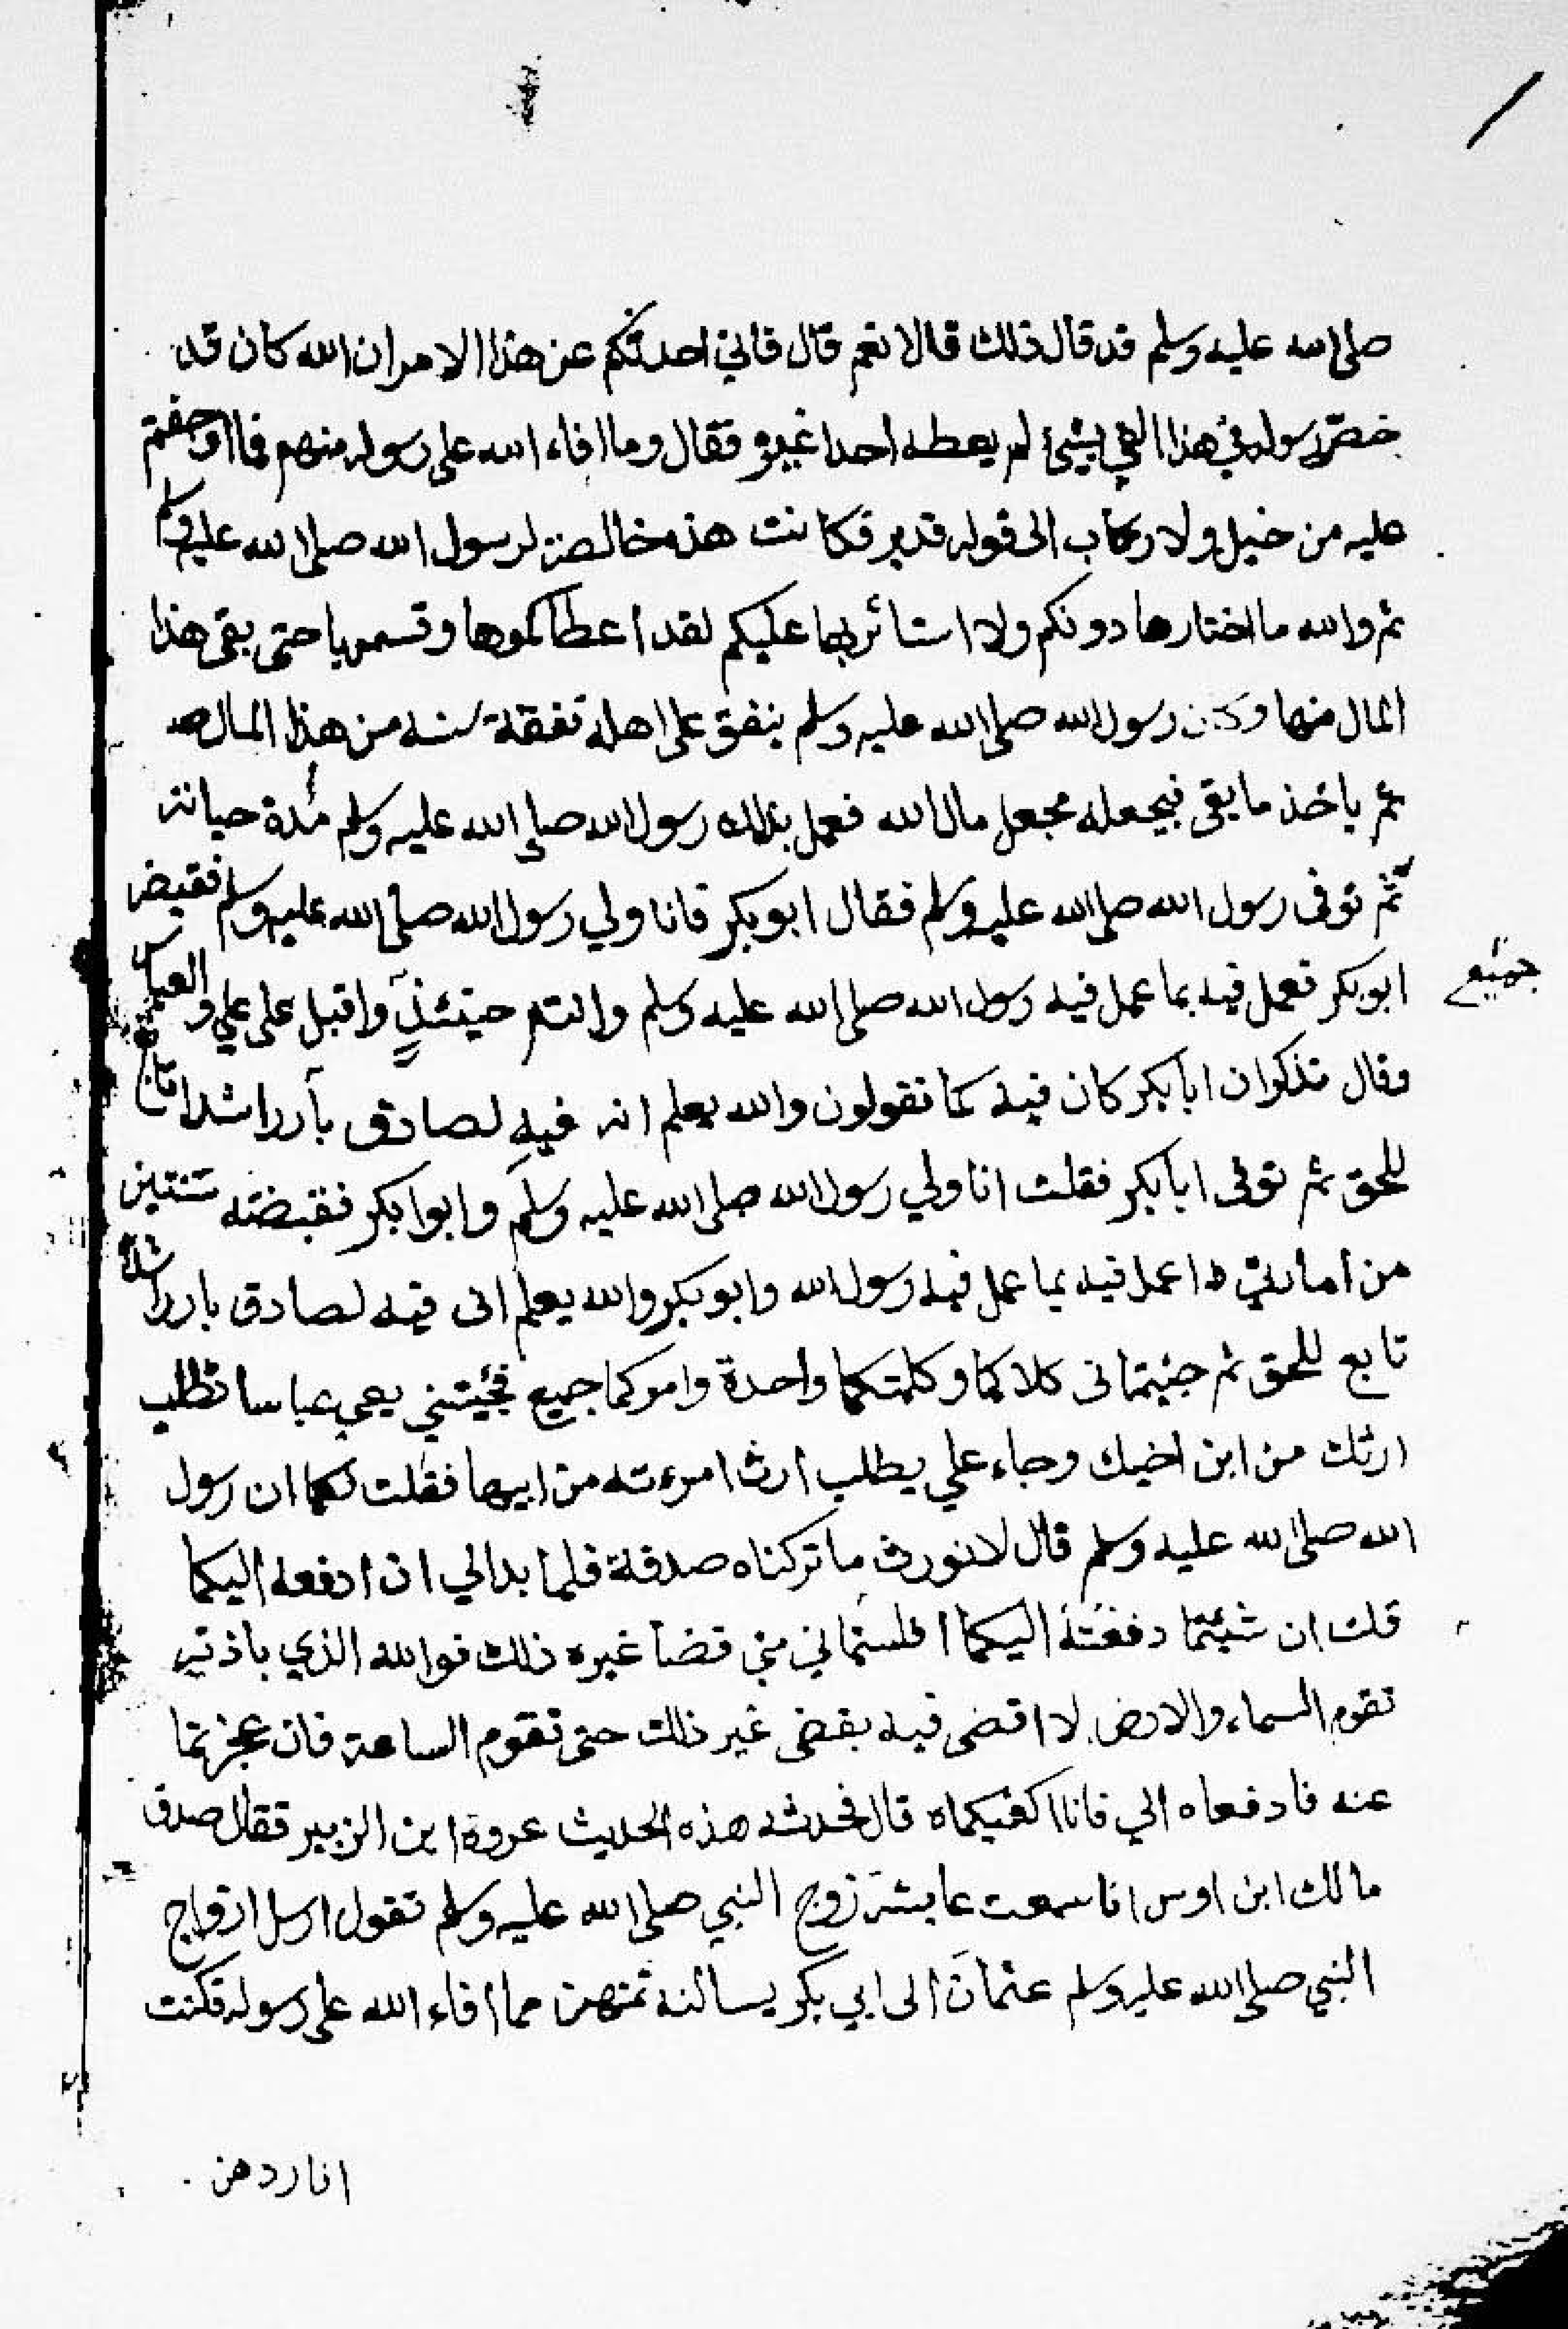 صلى الله عليه وسلم قد قال ذلك قالا نعم قال فاني احدثكم عن هذا الامر ان الله كان قد
خصّ رسوله في هذا الفي بشيئ لم يعطه احدا غيره فقال وما افاء الله على رسوله منهم فما اوجفتم
عليه من خيل ولا ركاب الى قوله قدير فكانت هذه خالصة لرسول الله صلى الله عليه وسلم
ثم والله ما اختارها دونكم ولا استأثر بها عليكم لقد اعطاكموها وقسمها حتى بقى هذا
المال منها وكان رسول الله صلى الله عليه وسلم ينفق على اهله نفقة سنه من هذا المال
ثم ياخذ ما بقى فيجعله مجعل مال الله فعمل بذلك رسول الله صلى الله عليه وسلم مدة حياته
ثم توفى رسول الله صلى الله عليه وسلم فقال ابو بكر فانا ولي رسول الله صلى الله عليه وسلم فقبض
ابو بكر فعمل فيه بما عمل فيه رسول الله صلى الله عليه وسلم وانتم حينئذٍ واقبل على علي والعباس
جميع
وقال تذكران ابا بكر كان فيه كما تقولون والله يعلم انه فيه لصادق بار راشدا تابع
للحق ثم توفى ابا بكر فقلت انا ولي رسول الله صلى الله عليه وسلم وابوا بكر فقبضته سنتين
من امارتي اعمل فيه بما عمل فيه رسول الله وابو بكر والله يعلم انى فيه لصادق بار راشد
تابع للحق ثم جئيتمانى كلاكما وكلمتكما واحدة وامركما جميع فجئيتني يعني عباسا تطلب
ارثك من ابن اخيك وجاء علي يطلب ارث امرءته من ابيها فقلت لكما ان رسول
الله صلى الله عليه وسلم قال لا نورث ما تركناه صدقة فلما بدالي ان ادفعه اليكما
قلت ان شيئتما دفعته اليكما افلستماني مني قضا غيره ذلك فوالله الذي باذنه
تقوم السماء والارض لا اقضى فيه بقضى غير ذلك حتى تقوم الساعة فان عجزتما
عنه فادفعاه الي فانا اكفيكماه قال فحدثه هذه الحديث عروة ابن الزبير فقال صدق
مالك ابن اوس انا سمعت عايشة زوج النبي صلى الله عليه وسلم تقول ارسل ازواج
النبي صلى الله عليه وسلم عثمان الى ابي بكر يسالنه ثمنهن مما افاء الله على رسوله فكنت
انا ردهن